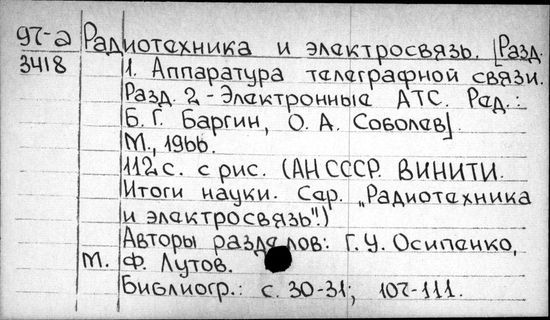 97-а Радиотехника и электросвязь. [Разд.
3418 1. Аппаратура телеграфной связи.
Разд. 2 - Электронные АТС. Ред.:
Б. Г. Баргин, О. А. Соболев].
М., 1966.
112 с. с рис. (АН СССР. ВИНИТИ.
Итоги науки. Сер. „Радиотехника
и электросвязь".)
Авторы разделов: Г. У. Осипенко,
М. Ф. Лутов.
Библиогр.: с. 30-31; 107-111.